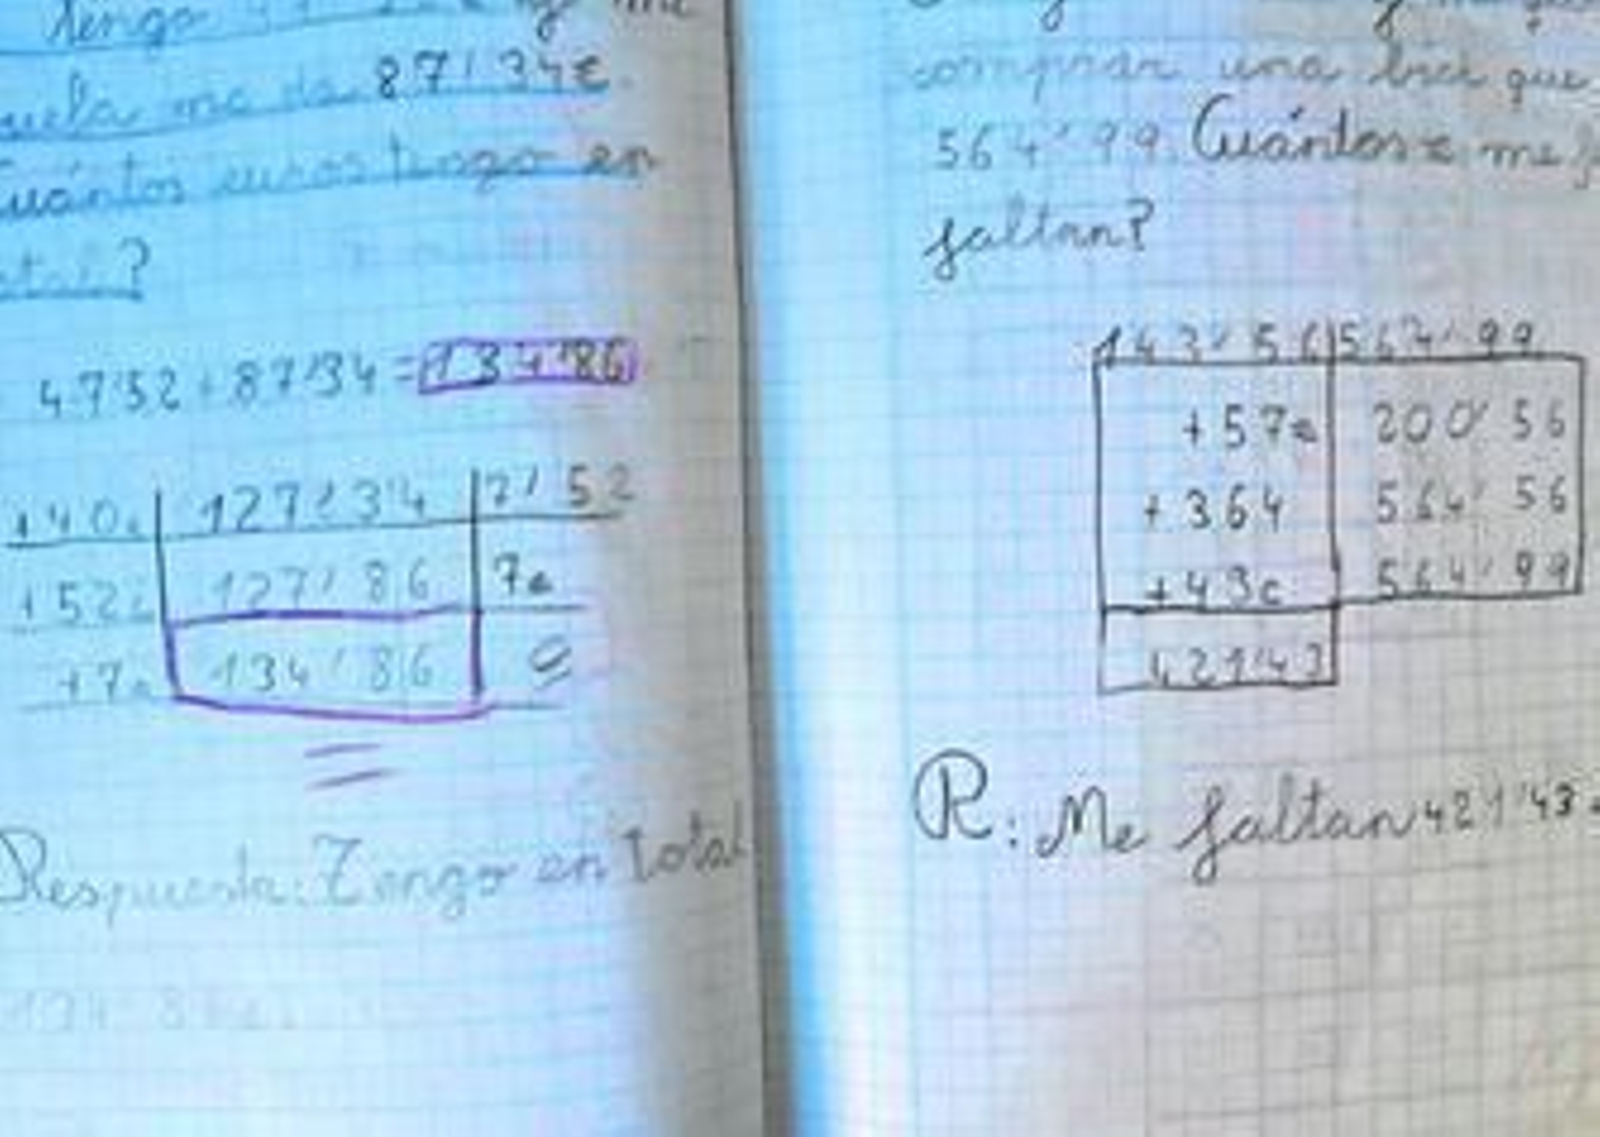 Tengo
me
uela me da 87'34€.
Cuántos euros tengo en
otal?
47'52+87'34=134'86
+40e 127'34 7'52
+52c 127'86 7e
+7e 134'86 0
Respuesta: Tengo en total
134'86
comprar una bici que
564'99. Cuántos € me
faltan?
143'56 564'99
+57e 200'56
+364 564'56
+43c 564'99
421'43
R: Me faltan 421'43